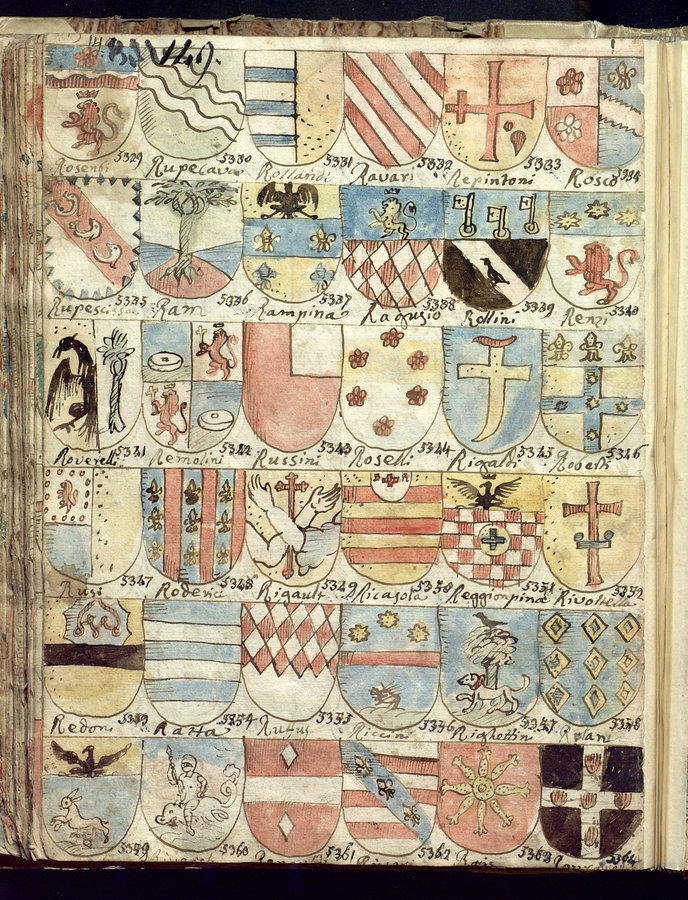 149.
5329 5330 5331 5332 5333 5334
Rosenti Rupecava Rollandi Ravari Repintoni Rosco
5335 5336 5337 5338 5339 5340
Rupescissa Ram Rampina Ragusio Rollini Renzi
5341 5342 5343 5344 5345 5346
Roverelli Remolini Russini Roselli Rigaldi Roberti
5347 5348 5349 5350 5351 5352
Rusi Roderici Rigault Ricasola Reggionpina Rivoltella
5353 5354 5355 5356 5357 5358
Redoni Razza Rufus Riccini Righettini Rolani
5359 5360 5361 5362 5363 5364